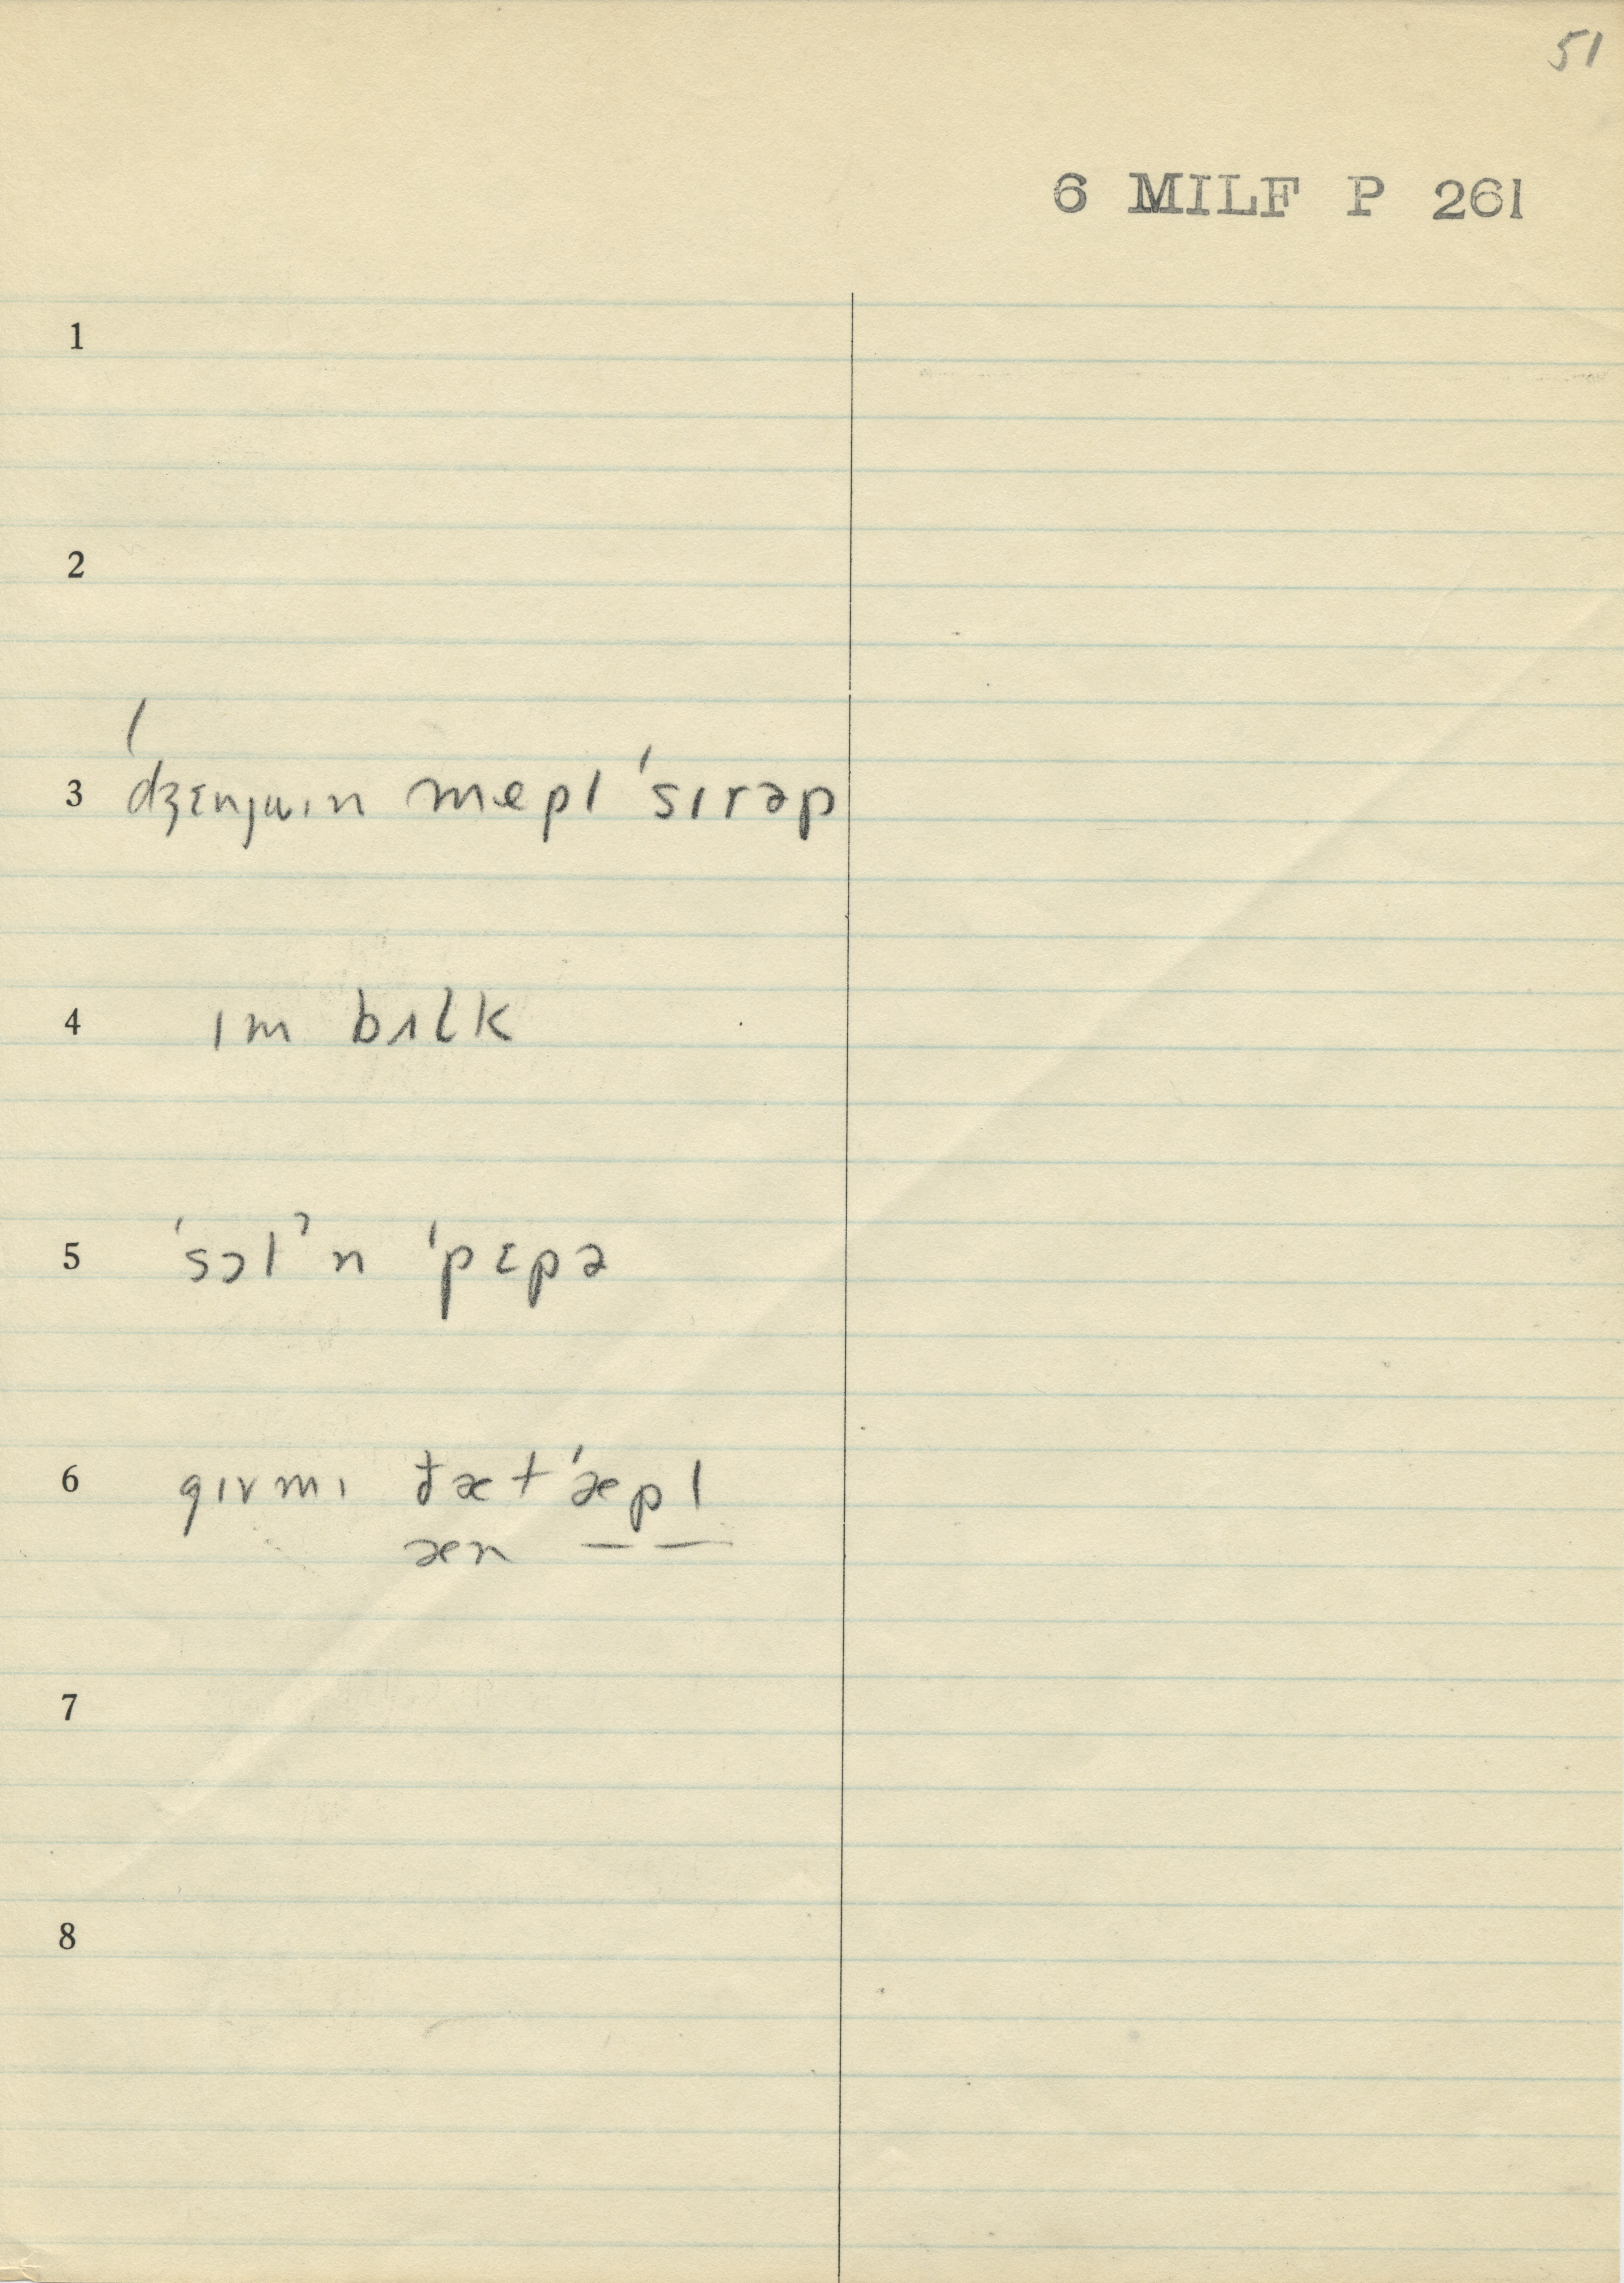 51
6 MILF P 261
1
2
3 ˈdʒɛnjuɪn mepl ˈsɪrəp
4 ɪm bʌlk
5 ˈsɔlˀn ˈpɛpə
6 gɪvmɪ đætˈæpl
æn — —
7
8